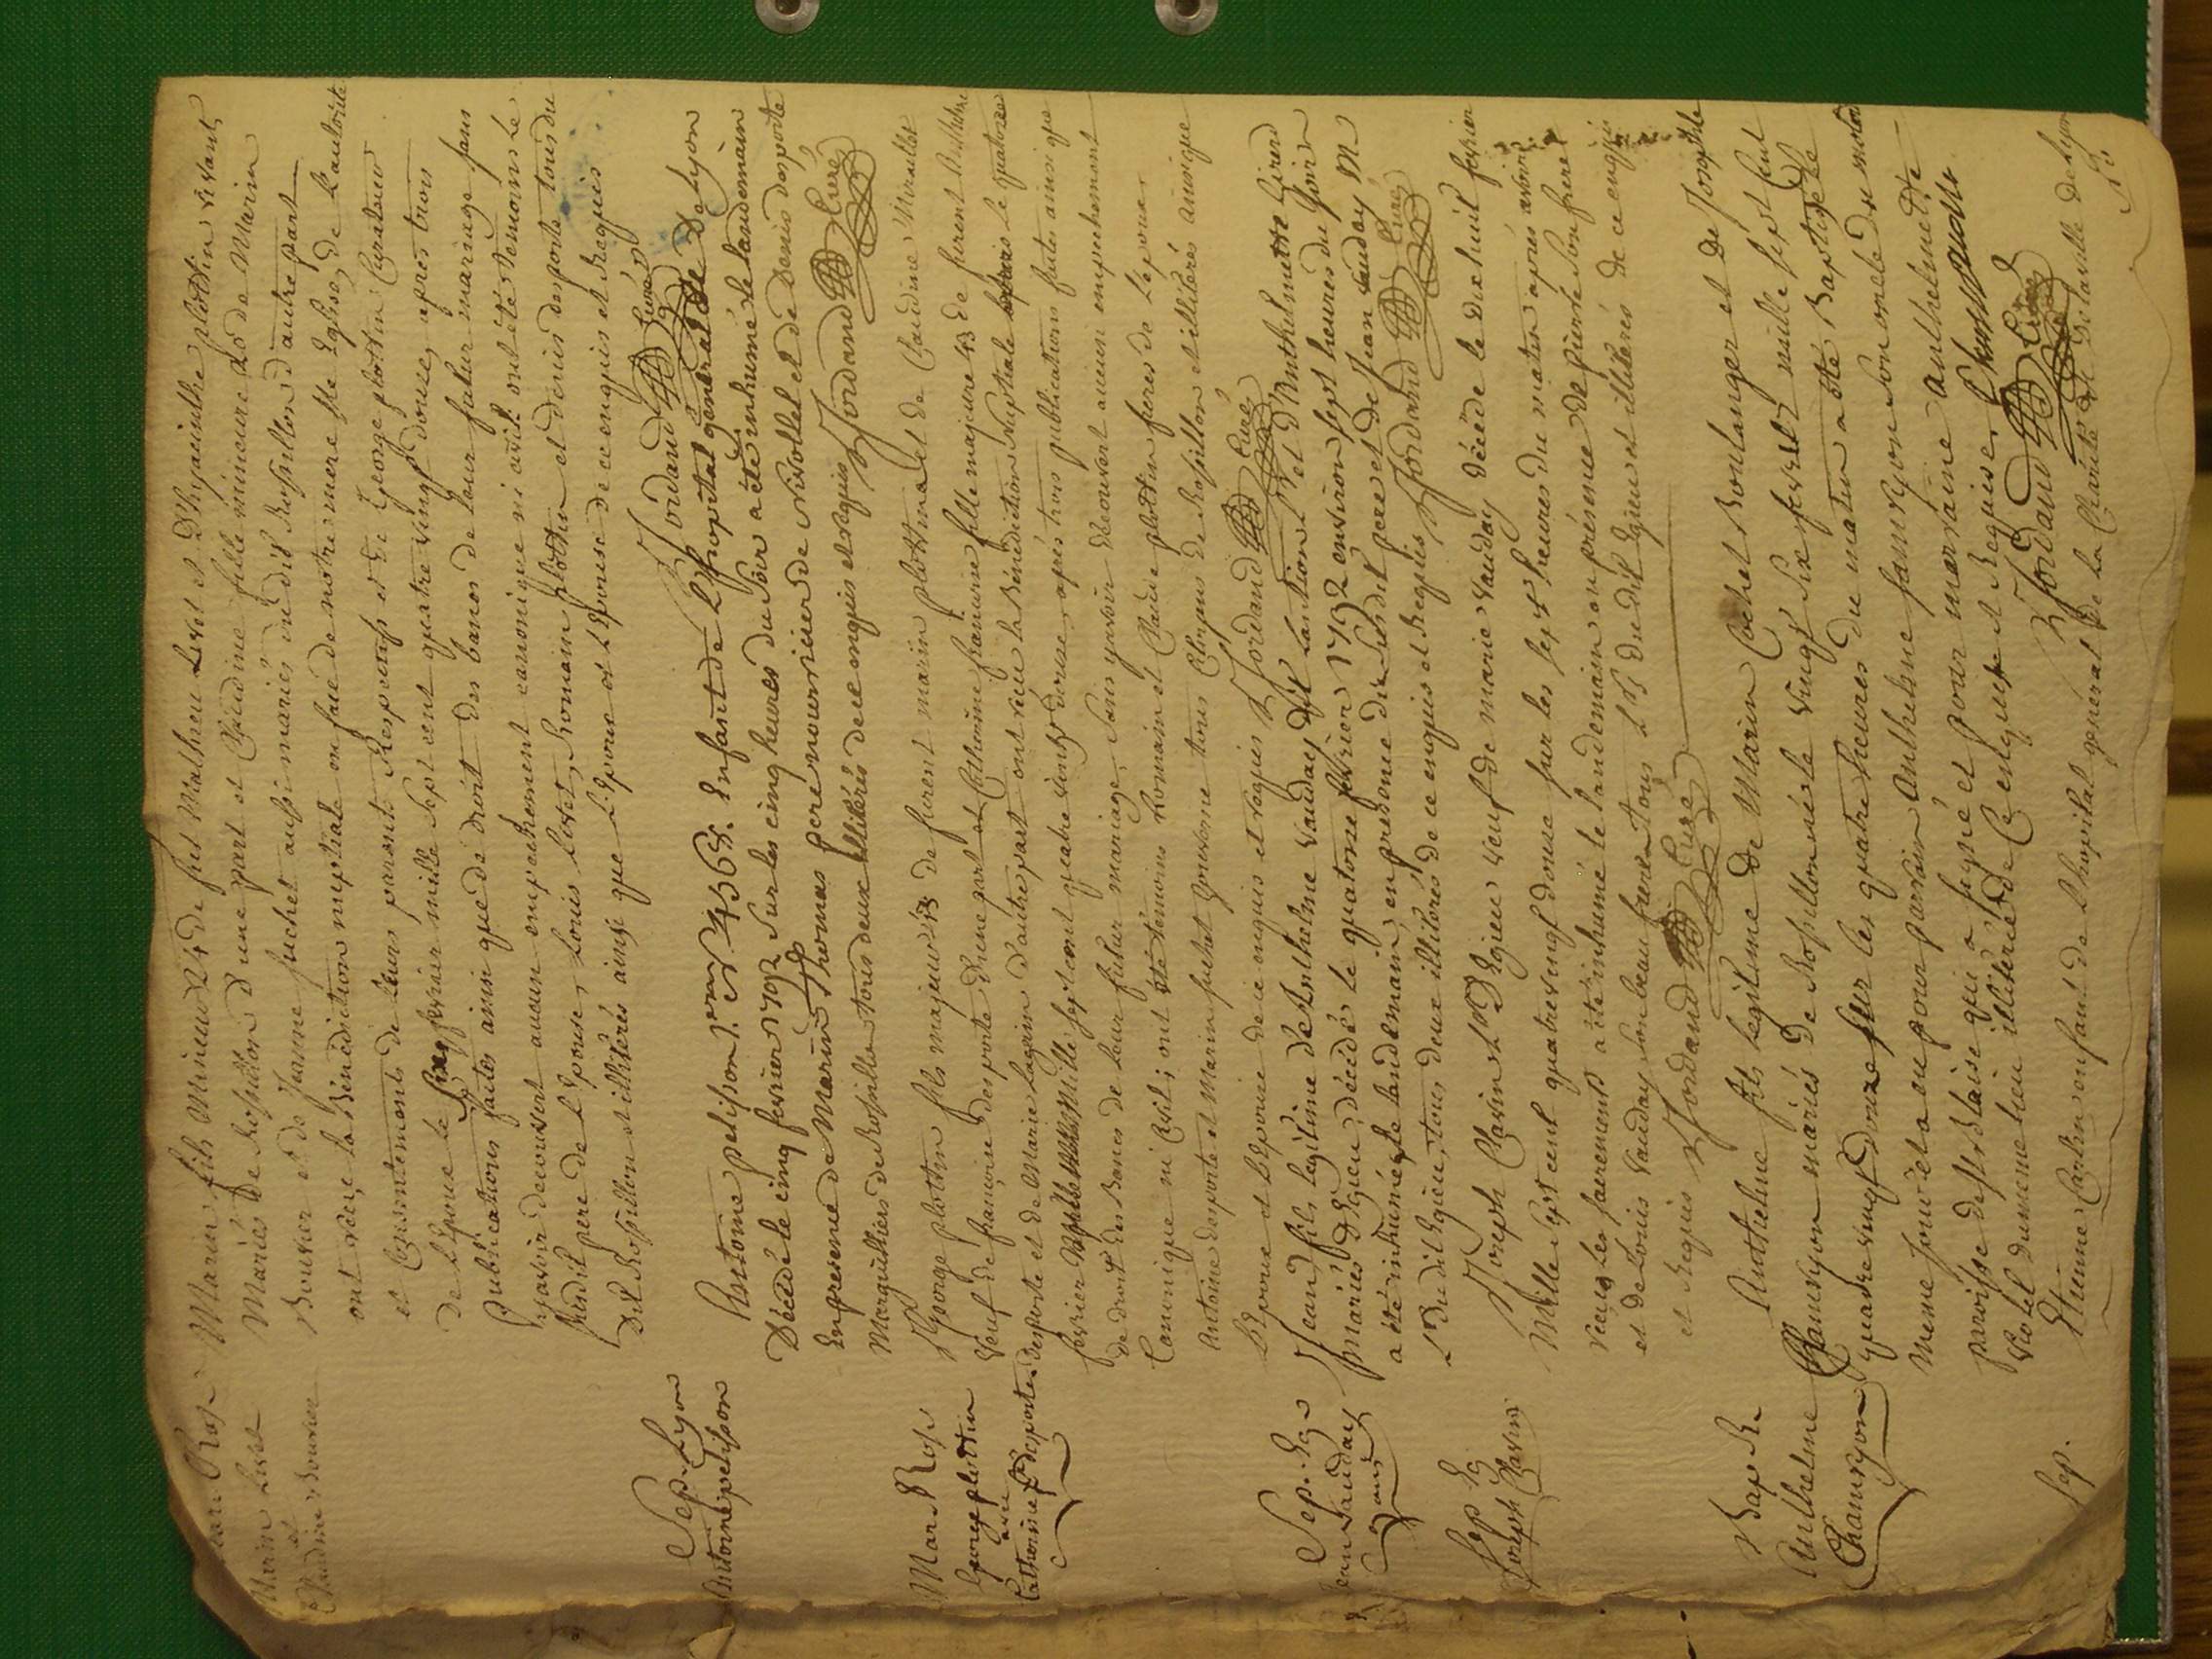 Mar. Ros
Marin Livet
et
Claudine Bouvier
Marin fils Mineur de fut Mathieu Livet et d'hyacinthe plottin vivant
Mariés de Rossillon d'une part et Claudine fille mineure de Marin
Bouvier et de Jeanne suchet aussi mariés dudit Rossillon d'autre part
ont recu la Bénédiction nuptiale en face de notre mere Ste Eglise, de l'autorité
et Consentement de leurs parents Respectifs et de George plottin Curateur
de l'Epoux le six fevrier mille sept cent quatre vingt douze, apres trois
publications faites ainsi que de droit des bancs de leur futur mariage sans
y avoir decouvert aucun empechement canonique ni civil ont été temoins le
susdit pere de l'Epouse, Louis Livet, Romain plottin et denis desporte tous du
dit Rossillon et illitérés ainsi que l'Epoux et l'Epouse de ce enquis et Requis
Jordand Curé
Sep. Lyon
Antoine pelisson
Antoine pelisson enfant de l'hopital général de Lyon
Décédé le cinq fevrier 1792 sur les cinq heures du soir a été inhumé le landemain
En presence de Marin Thomas pere nourricier de Nivollet et de Denis desporte
Marguilliers de Rossillon tous deux illitérés de ce enquis et Requis Jordand Curé
Mar. Ros
George plottin
avec
Catherine fse Desporte
George plottin fils majeur de furent marin plottin et de Claudine Mirallet
Veuf de françoise desporte d'une part et Catherine francoise fille majeure de furent Balthazard
desporte et de Marie lagrin d'autre part ont recu la Bénédiction Nuptiale le quatorze
fevrier Mille sept cent quatre vingt douze, après trois publications faites ainsi que
de droit des Bancs de leur futur mariage, sans y avoir decouvert aucun empechement
Canonique ni Civil; ont été temoins Romain et Claude plottin freres de l'epoux
Antoine desporte et Marin suchet tous de Rossillon et illitérés ainsi que
L'Epoux et L'Epouse de ce enquis et requis Jordand Curé
Sep. Eg
Jean Vauday
Jean fils legitime de Anthelme Vauday et d'Anthelmette Girerd
mariés d'Egieu, décédé le quatorze fevrier 1792 environ sept heures du soir
a été inhumé le landemain, en presence du susdit pere et de Jean Vauday
dudit Egieu, tous deux illitérés de ce enquis et Requis Jordand Curé
Sep Eg
Joseph Clavin
Joseph Clavin d'Egieu veuf de marie Vauday Décédé le dix huit fevrier
Mille sept cent quatre vingt douze sur les sept heures du matin après avoir
reçu les sacrements a été inhumé le landemain en présence de pierre son frere
et de Louis Vauday son beau frere tous dudit Egieu et illitérés de ce enquis
et Requis Jordand Curé
Bap. R.
Anthelme
Chamryon
Anthelme fils legitime de Marin Cochet Boulanger et de Josephte
Chamryon mariés de Rossillon né le vingt six fevrier mille sept cent
quatre vingt douze sur les quatre heures du matin a été Baptisé le
meme jour et a eu pour parrain Anthelme famryon son oncle du meme
paroisse de St Blaise qui a signé et pour marraine anthelmette
Votel du meme lieu illitérée de ce enquise et Requise.
Jordand Curé
Sep.
Etienne Carlin enfant de l'hopital general de la Charité de la ville de Lyon